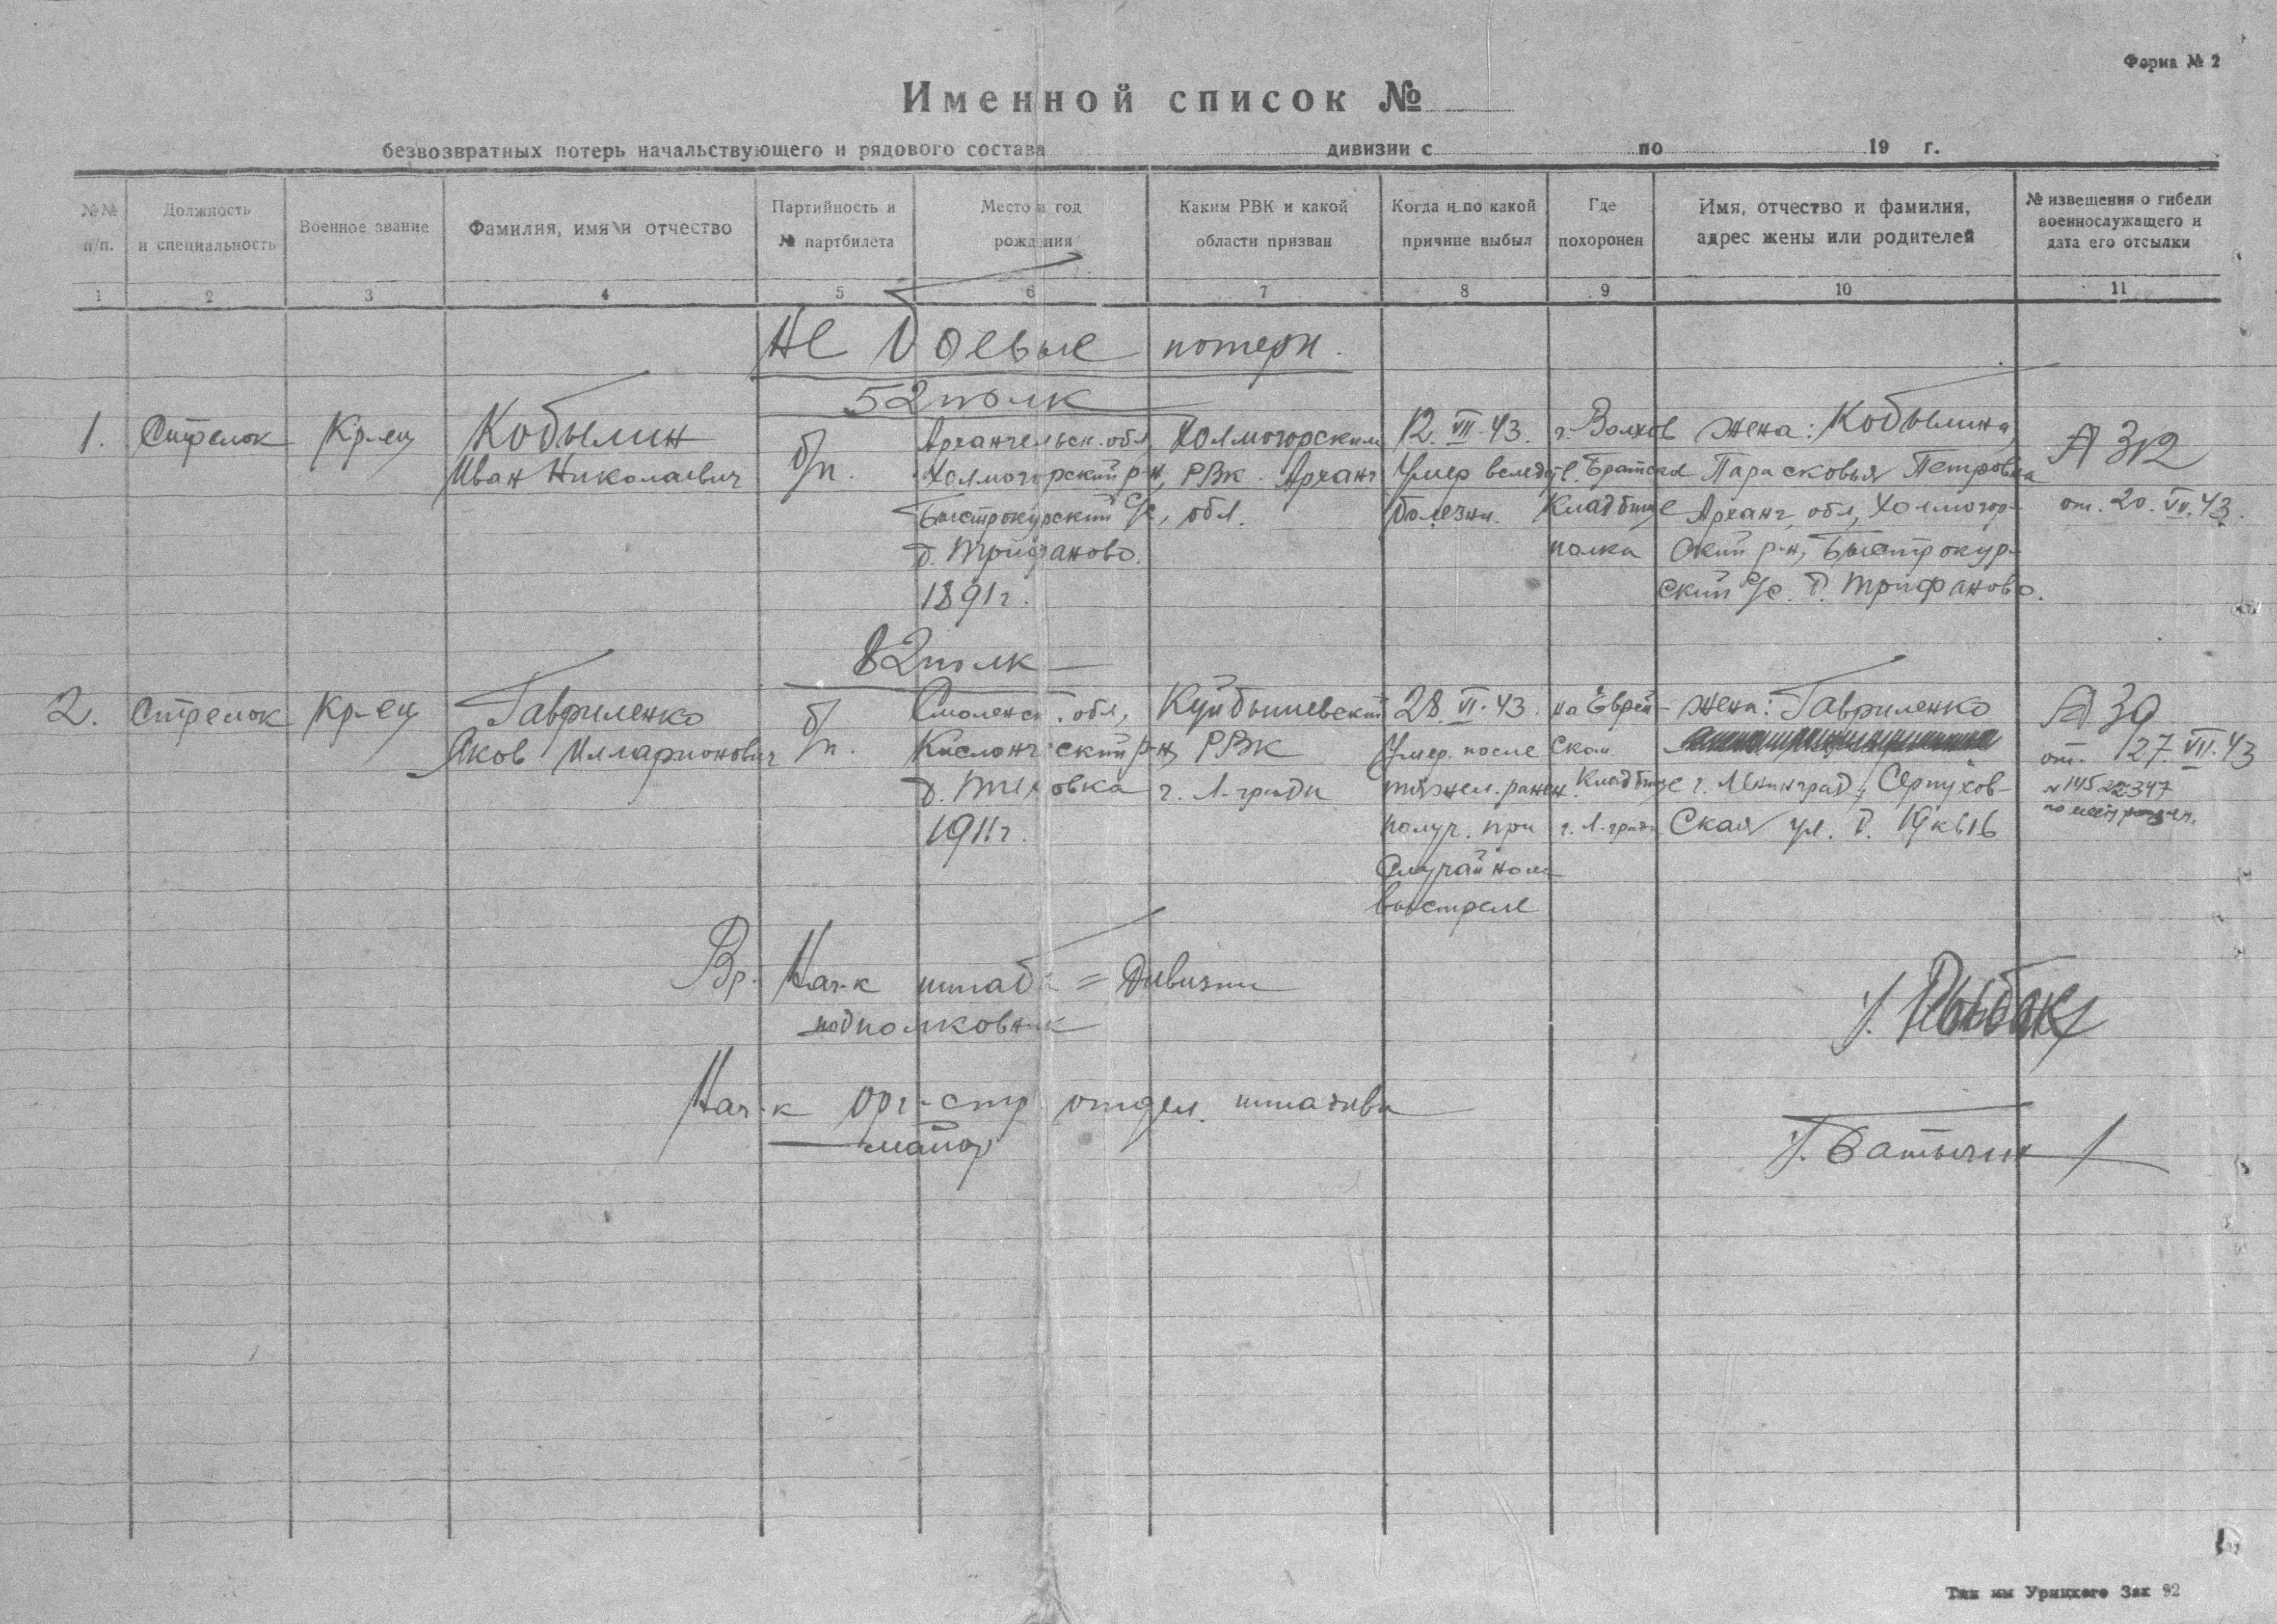 Форма № 2
Именной список №
безвозвратных потерь начальствующего и рядового состава дивизии с по 19 г.
№№ п/п.
Должность и специальность
Военное звание
Фамилия, имя и отчество
Партийность и № партбилета
Место и год рождения
Каким РВК и какой области призван
Когда и по какой причине выбыл
Где похоронен
Имя, отчество и фамилия, адрес жены или родителей
№ извещения о гибели военнослужащего и дата его отсылки
1 2 3 4 5 6 7 8 9 10 11
Не боевые потери.
52 полк
1.
Стрелок
Кр-ец
Кобылин
Иван Николаевич
б/п.
Архангельск. обл,
Холмогорский р-н,
Быстрокурский с/с,
д. Трифаново.
1891 г.
Холмогорским
РВК. Арханг
обл.
12. VII. 43.
Умер вследст.
болезни.
г. Волхов
Братское
Кладбище
полка
жена: Кобылина
Парасковья Петровна
Арханг. обл, Холмогор-
ский р-н, Быстрокур-
ский с/с. д. Трифаново.
от. 20. VII. 43.
82 полк
2.
Стрелок
Кр-ец
Гавриленко
Яков Илларионович
б/п.
Смоленск. обл,
р-н,
1911 г.
Куйбышевский
РВК
г. Л-града
28. VI. 43.
Умер. после
тяжел. ранен.
получ. при
случайном
выстреле
на Еврей-
ском
Кладбище
г. Л-града
жена: Гавриленко
г. Ленинград, Серпухов-
ская ул. д. 19 кв 16
от. 27. VII. 43
Вр. Нач-к штаба Дивизии
подполковник
/. Рыбак /
Нач-к орг-стр отдел. штадива
майор